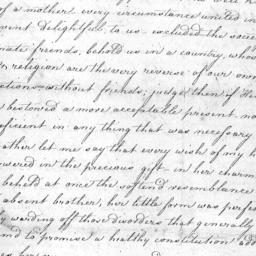 of a mother every circumstance united in
vent Delightful to us - excluded the socie
nate friends, behold us in a country, who
n religion are the very reverse of our own
ctions - without friends; judge then if He
bestowed a more acceptable present no
eficient in any thing that was necessary
ather let me say that every wish of my h
owered in the precious gift - in her charm
beheld at once the softend resemblance
absent brother; her little form was perfe
ly warding off those disorders that generally
md to promise a healthy constitution add